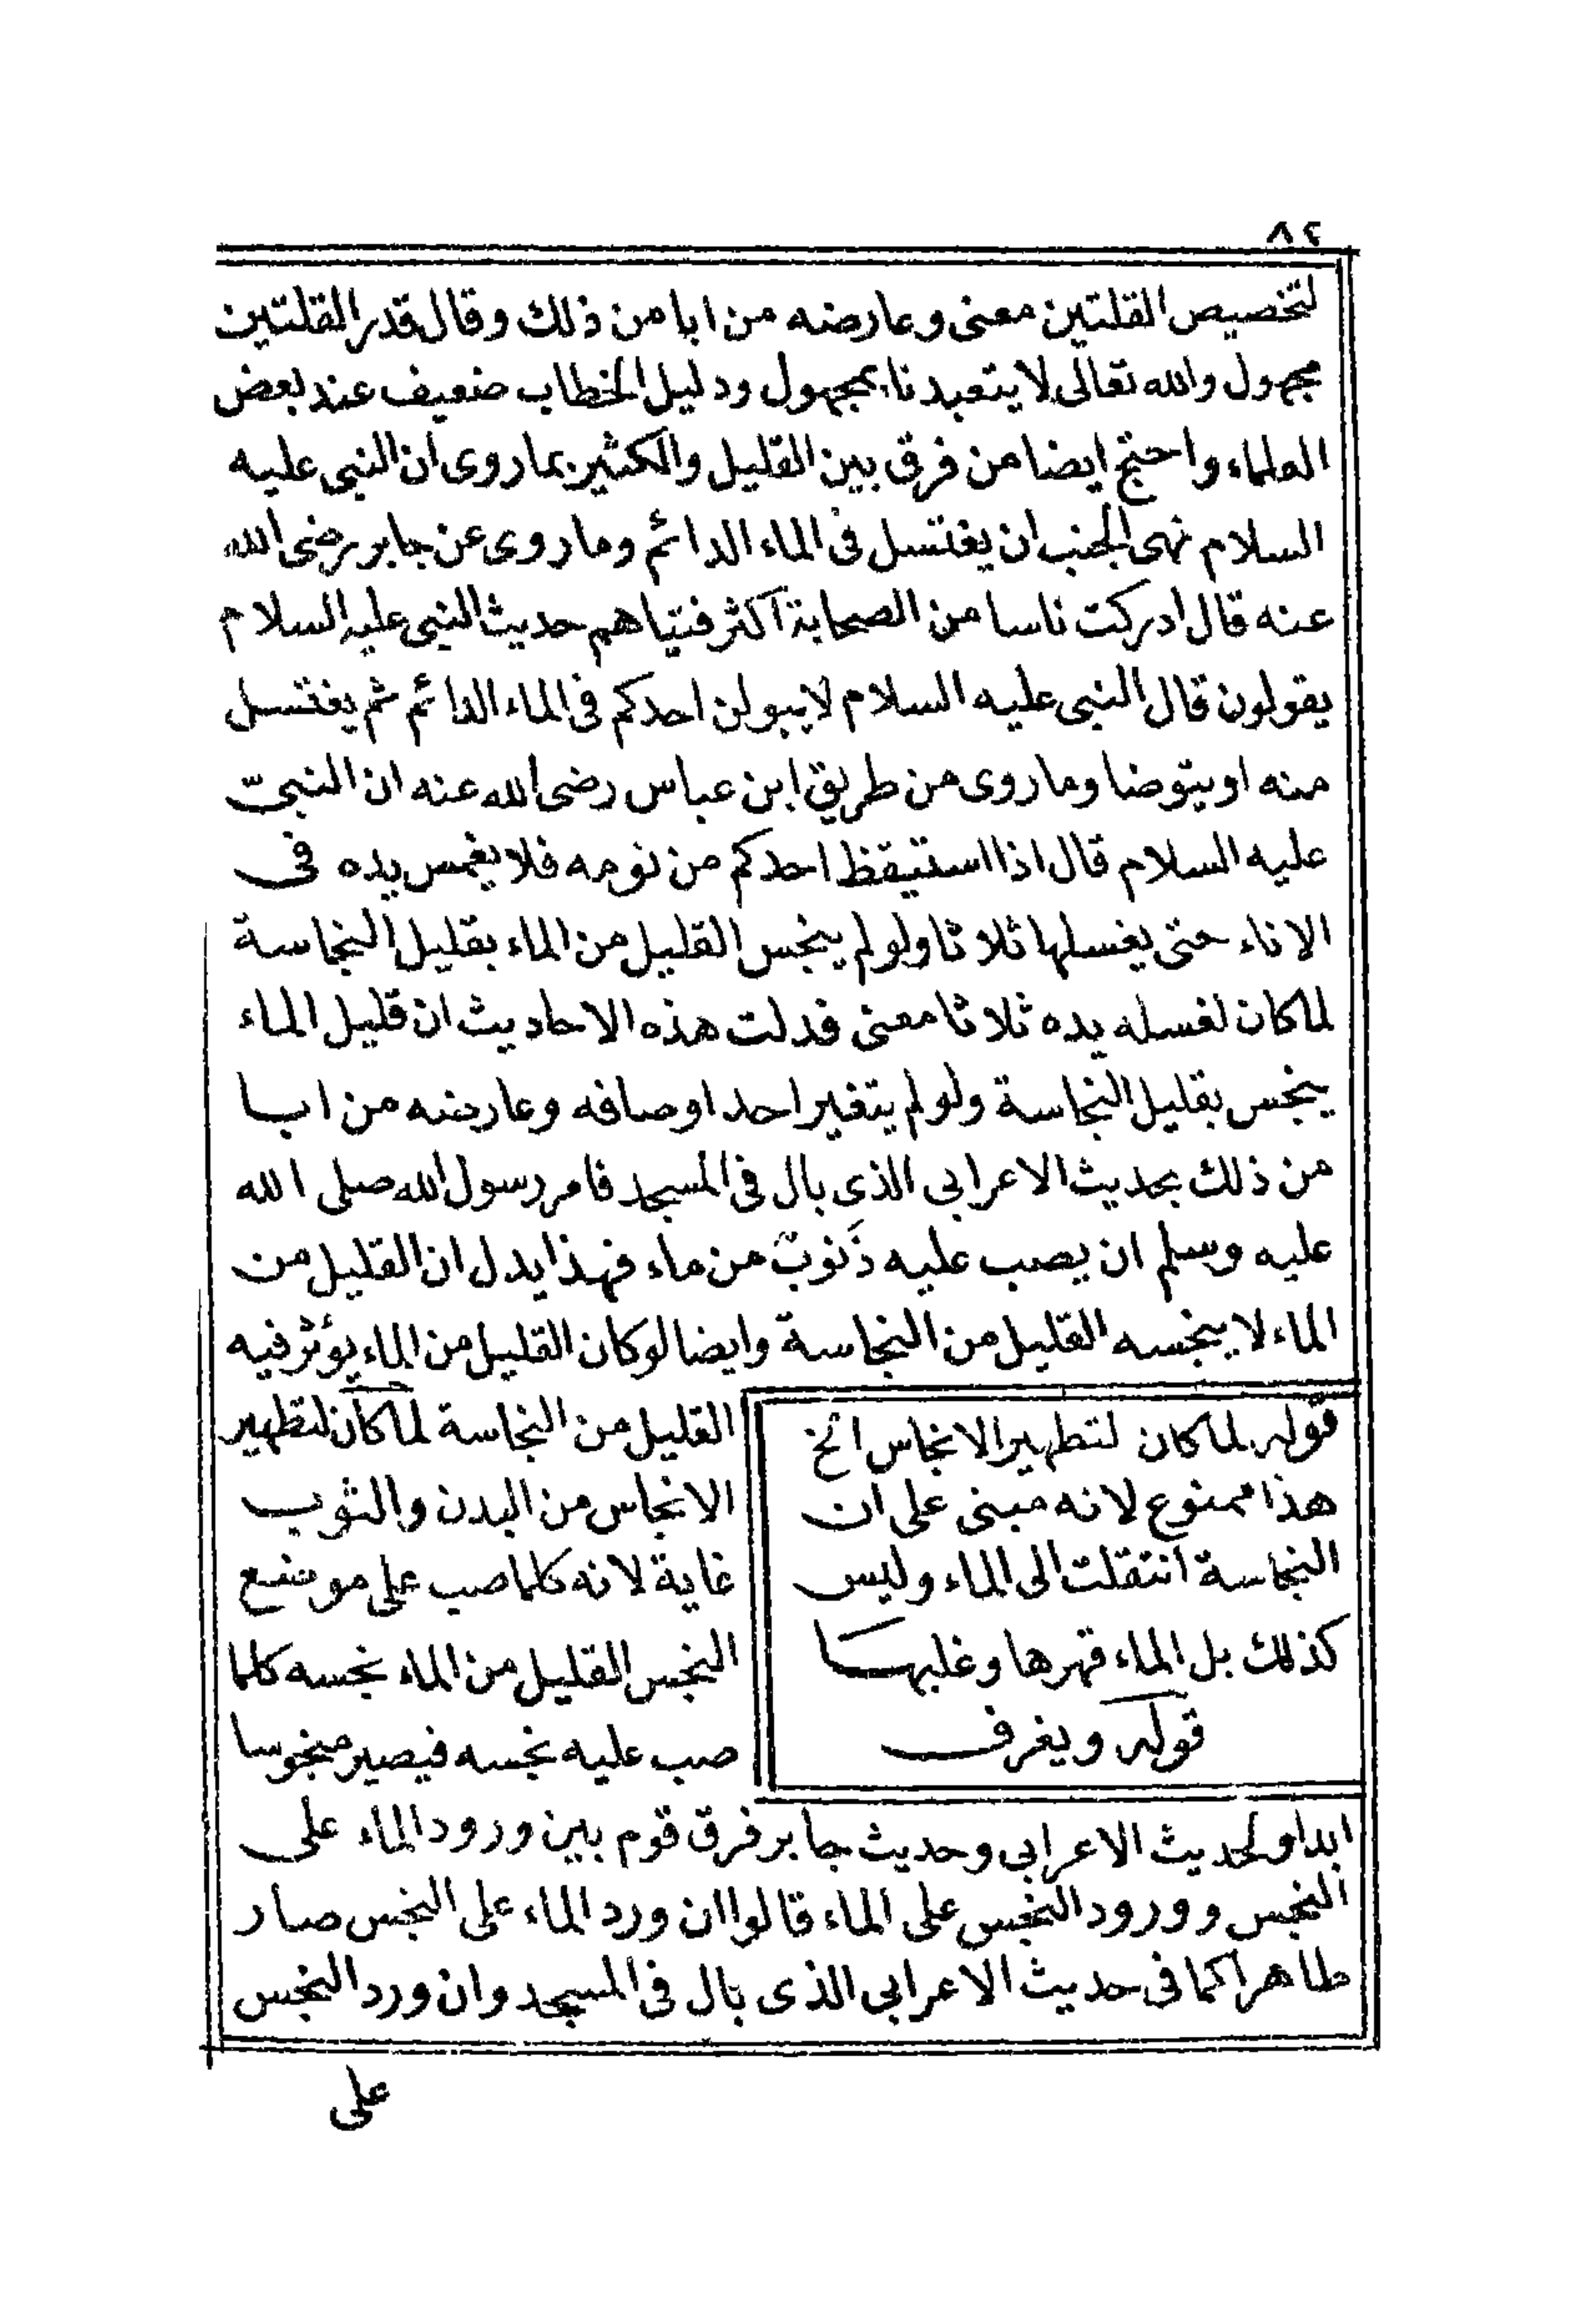 ٨٢
لتخصيص القلتين معنى وعارضه من ابا من ذلك وقال قدر القلتين
مجهول والله تعالى لا يتعبدنا بمجهول ودليل الخطاب ضعيف عند بعض
العلماء واحتج ايضا من فرق بين القليل والكثير بما روى ان النبي عليه
السلام نهى الجنب ان يغتسل فى الماء الدائم وما روى عن جابر رضى الله
عنه قال ادركت ناسا من الصحابة اكثر فتياهم حديث النبى عليه السلام
يقولون قال النبى عليه السلام لا يبولن احدكم فى الماء الدائم ثم يغتسل
منه او يتوضا وما روى من طريق ابن عباس رضى الله عنه ان النبىّ
عليه السلام قال اذا استيقظ احدكم من نومه فلا يغمس يده فى
الاناء حتى يغسلها ثلاثا ولو لم ينجس القليل من الماء بقليل النجاسة
لما كان لغسله يده ثلاثا معنى فدلت هذه الاحاديث ان قليل الماء
ينجس بقليل النجاسة ولو لم يتغير احد اوصافه وعارضه من ابا
من ذلك بحديث الاعرابى الذى بال فى المسجد فامر رسول الله صلى الله
عليه وسلم ان يصب عليه ذَنوبٌ من ماء فهذا يدل ان القليل من
الماء لا ينجسه القليل من النجاسة وايضا لو كان القليل من الماء يؤثر فيه
القليل من النجاسة لما كان لتطهير
الانجاس من البدن والثوب
غاية لانه كلما صب على موضع
النجس القليل من الماء نجسه كلما
صب عليه نجسه فيصير منجوسا
قوله لما كان لتطهير الانجاس الخ
هذا ممنوع لانه مبنى على ان
النجاسة انتقلت الى الماء وليس
كذلك بل الماء قهرها وغلبها
قوله ويغرف
ابدا ولحديث الاعرابى وحديث جابر فرق قوم بين ورود الماء على
النجس وورود النجس على الماء قالوا ان ورد الماء على النجس صار
طاهرا كما فى حديث الاعرابى الذى بال فى المسجد وان ورد النجس
على